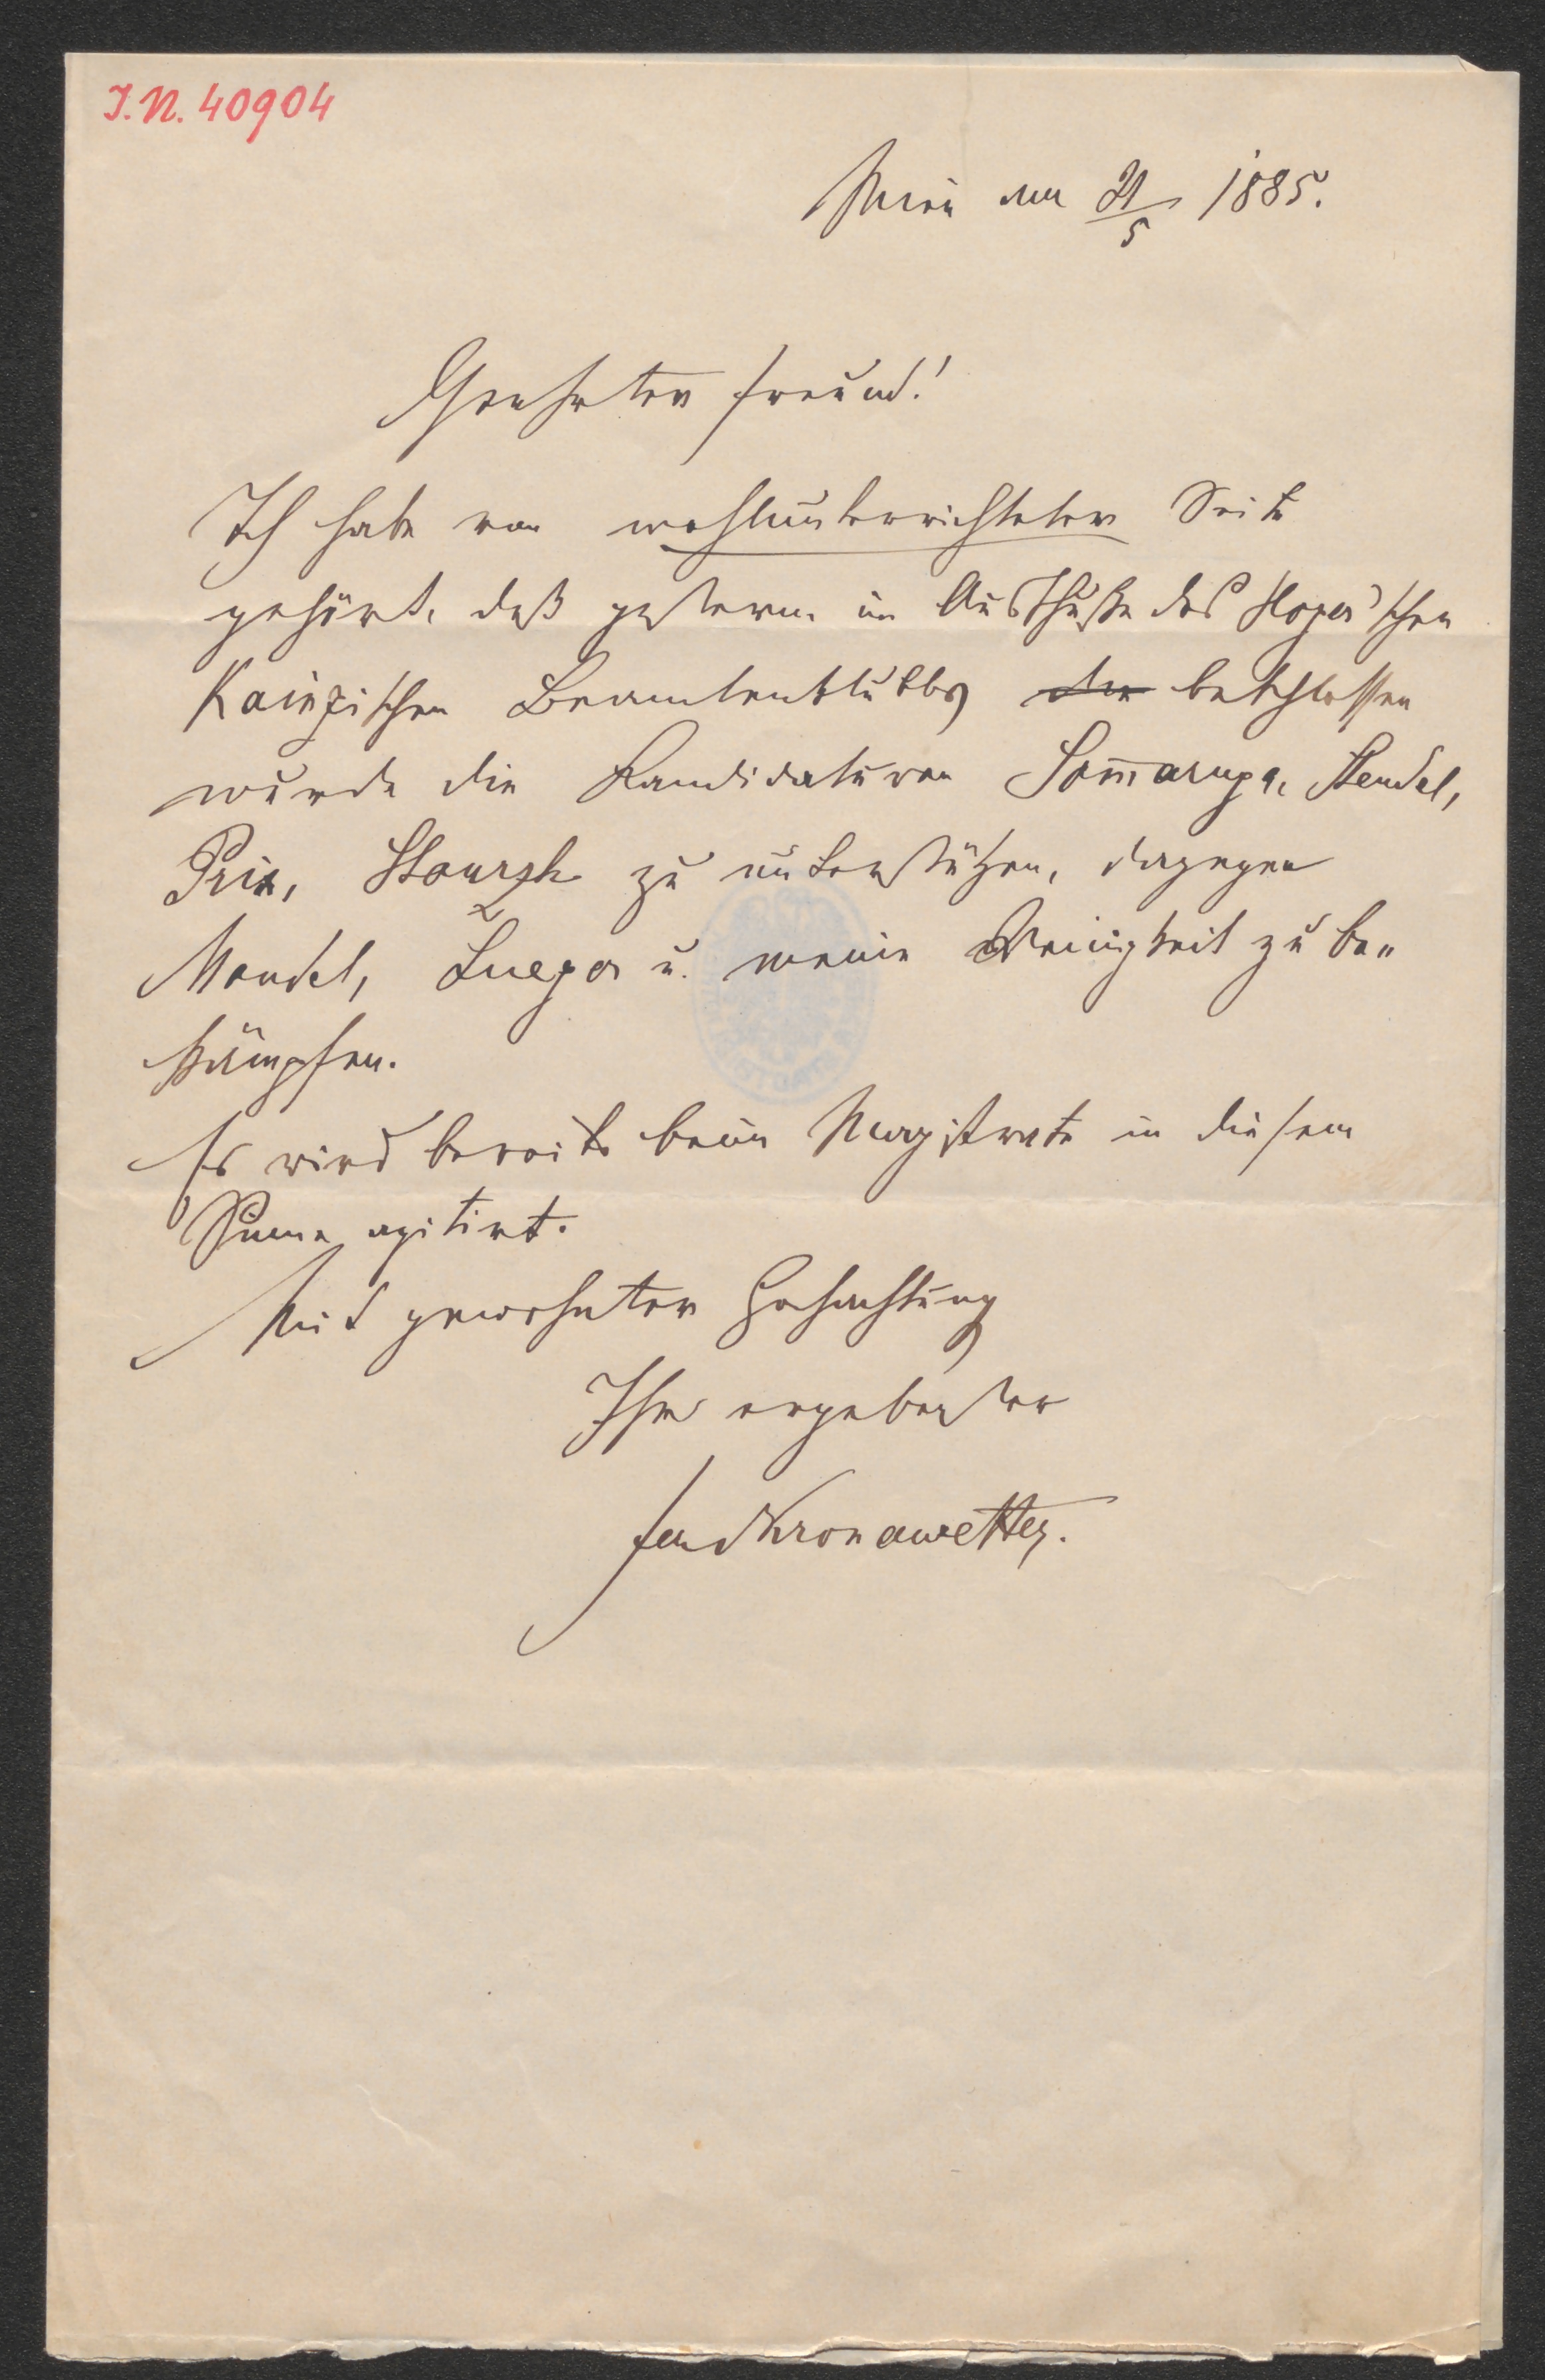 I.N. 40904
Wien am 21/5 1885.
Geehrter Freund!
Ich habe von wohlunterrichteter Seite
gehört, daß gestern im Ausschuße des
Beamtenklubbs der beschlossen
wurde die Kandidaturen Som̄aruga, Steudel,
Prix, Stourzh zu unterstützen, dagegen
Mandel, Lueger u. meine Wenigkeit zu be-
kämpfen.
Es wird bereits beim Magistrate in diesem
Sinne agitirt.
Mit gewohnter Hochachtung
Ihr ergebenster
Ferd Kronawetter.